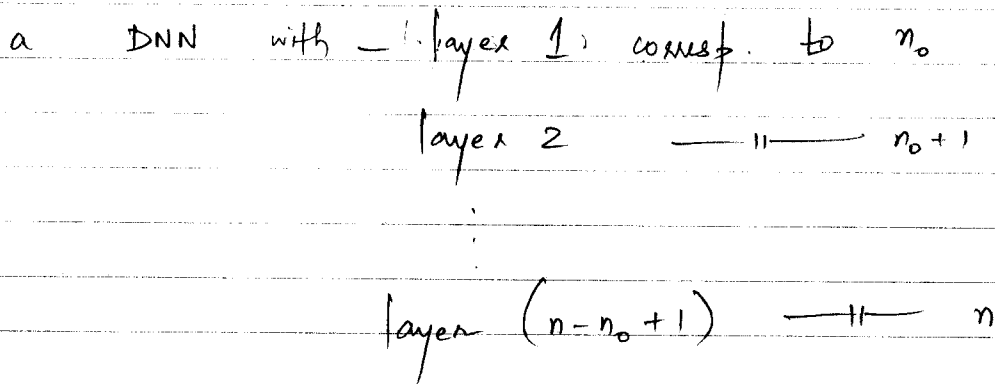 a DNN with - layer 1 : corresp. to n₀
layer 2 —— 〃 —— n₀ + 1
⋮
layer (n - n₀ + 1) —— 〃 —— n